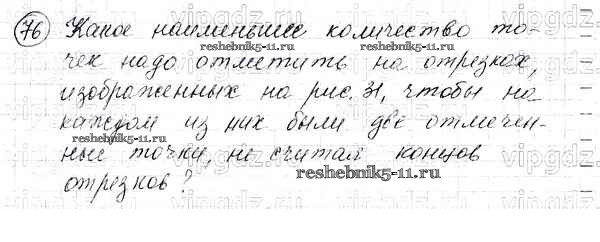 76 Какое наименьшее количество то-
чек надо отметить на отрезках,
изображенных на рис. 31, чтобы на
каждом из них были две отмечен-
ные точки, не считая концов
отрезков?
reshebnik5-11.ru
reshebnik5-11.ru
reshebnik5-11.ru
vipgdz
vipgdz